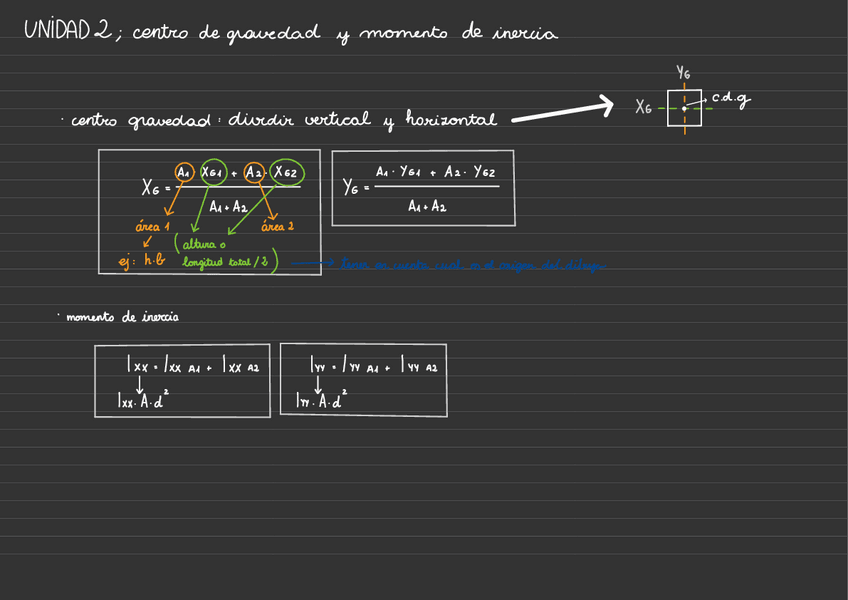 UNIDAD 2; centro de gravedad y momento de inercia
· centro gravedad: divrdir vertical y horizontal
YG
XG
c.d.g
XG = A1 · XG1 + A2 · XG2
A1 + A2
área 1
área 2
(altura o
longitud total / 2)
ej: h·b
YG = A1 · YG1 + A2 · YG2
A1 + A2
cual es el origen del dibujo
· momento de inercia
Ixx = Ixx A1 + Ixx A2
Ixx · A·d²
Iyy = Iyy A1 + Iyy A2
Iyy · A·d²